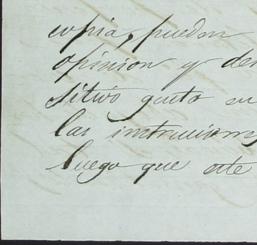 copia, pueden
opinion y de
sitivo gusto en
las instrucciones
luego que este